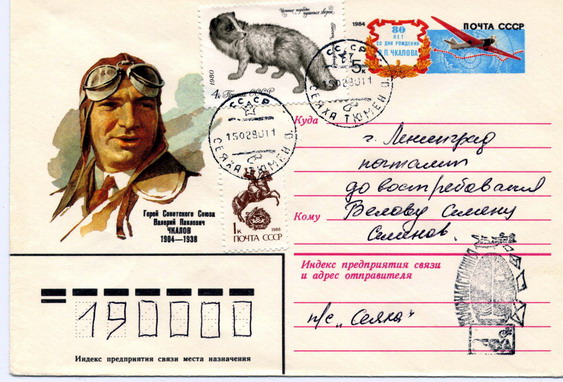 Ценные породы
пушных зверей
1980
4к Почта СССР
1984
ПОЧТА СССР
80
ЛЕТ
СО ДНЯ РОЖДЕНИЯ
В.П. ЧКАЛОВА
5к
СССР
15029011
СЕЯХА ТЮМЕН О.
СССР
15029011
СЕЯХА ТЮМЕН О.
1к 1988
ПОЧТА СССР
Герой Советского Союза
Валерий Павлович
ЧКАЛОВ
1904—1938
Куда
г. Ленинград
почтамт
до востребования
Кому Белову Семену
Индекс предприятия связи
и адрес отправителя
п/с „Сеяха"
190000
Индекс предприятия связи места назначения